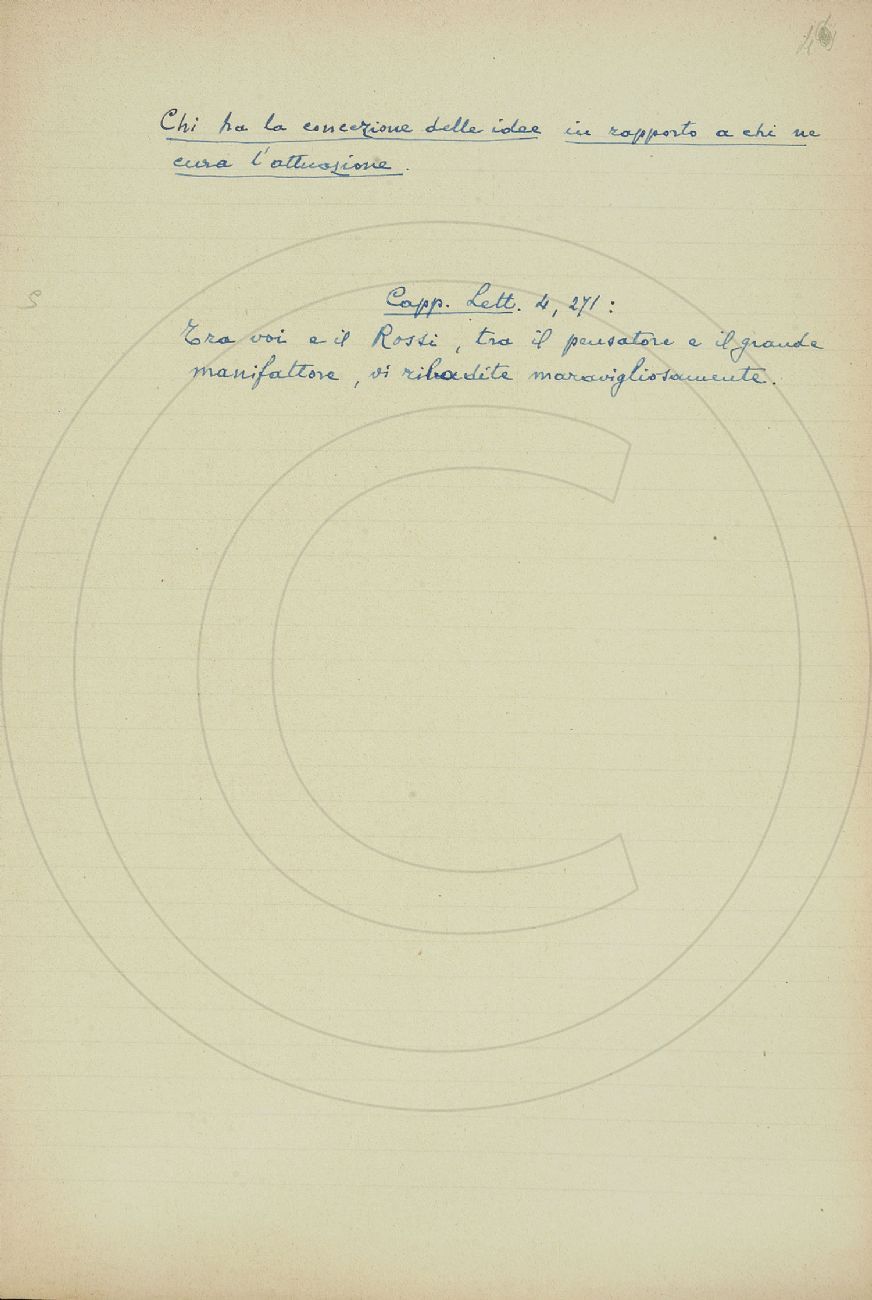 Chi ha la concezione delle idee in rapporto a chi ne
cura l'attuazione.
S
Capp. Lett. 4, 271:
Tra voi e il Rossi, tra il pensatore e il grande
manifattore, vi ribadite maravigliosamente.